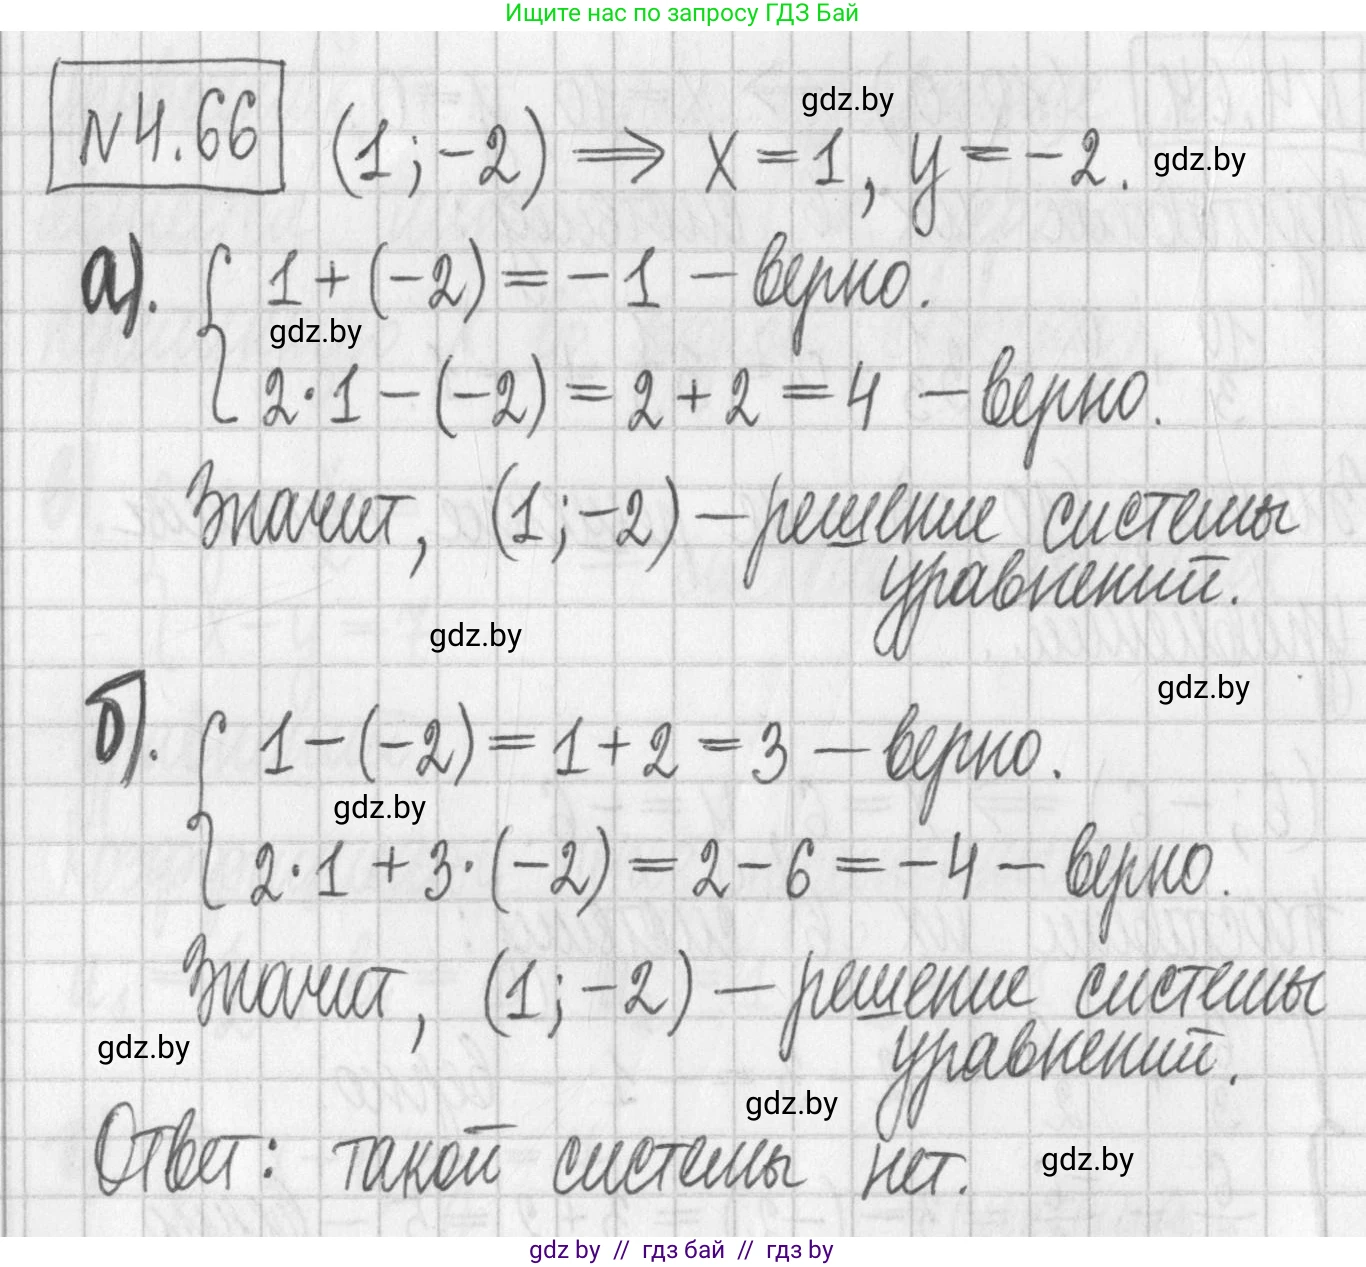 Ищите нас по запросу ГДЗ Бай
N4.66 (1;-2) ⟹ x=1, y=-2. gdz.by
gdz.by
а). { 1+(-2)=-1 – верно.
gdz.by
2·1-(-2)=2+2=4 – верно.
Значит, (1;-2) – решение системы
уравнений.
gdz.by
gdz.by
б). { 1-(-2)=1+2=3 – верно.
gdz.by
2·1+3·(-2)=2-6=-4 – верно.
Значит, (1;-2) – решение системы
уравнений.
gdz.by
gdz.by
Ответ: такой системы нет.
gdz.by
gdz by // гдз бай // гдз by